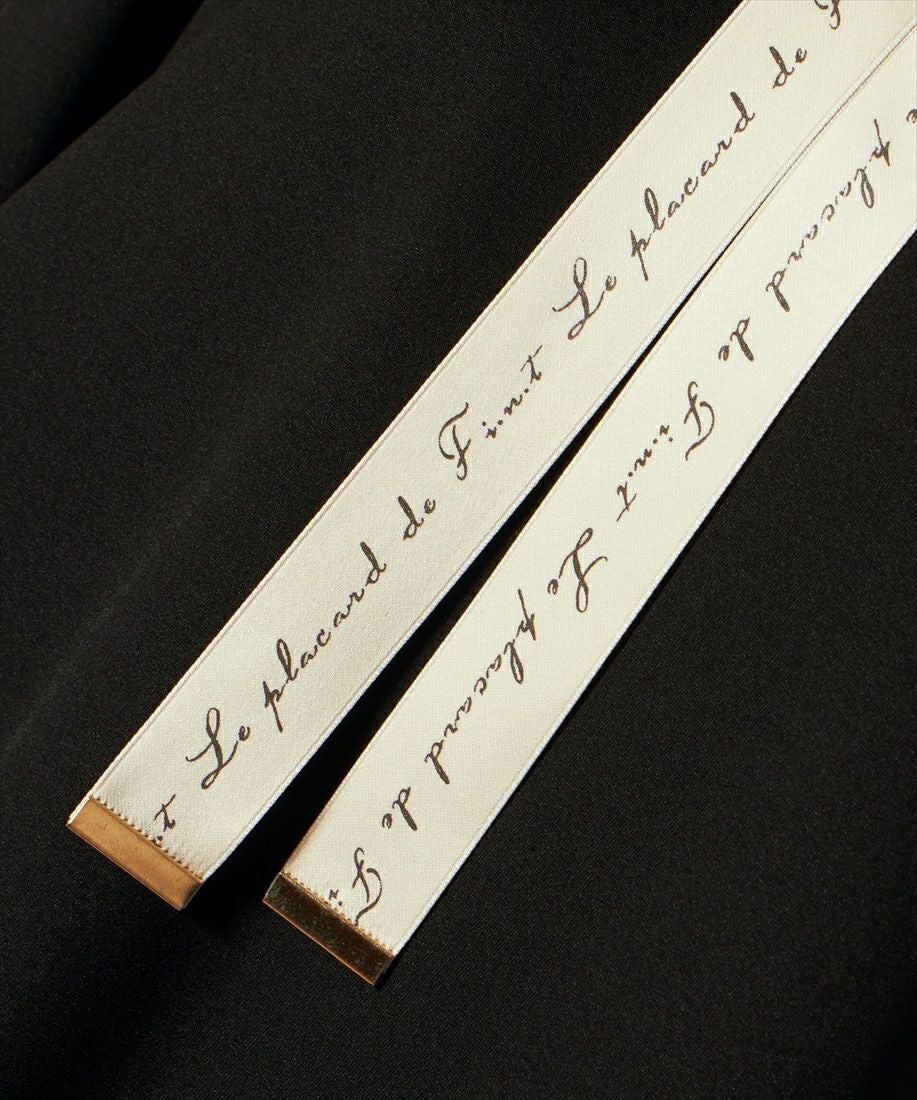 .t Le placard de F.i.n.t Le placard de F
e placard de F.i.n.t Le placard de F.i